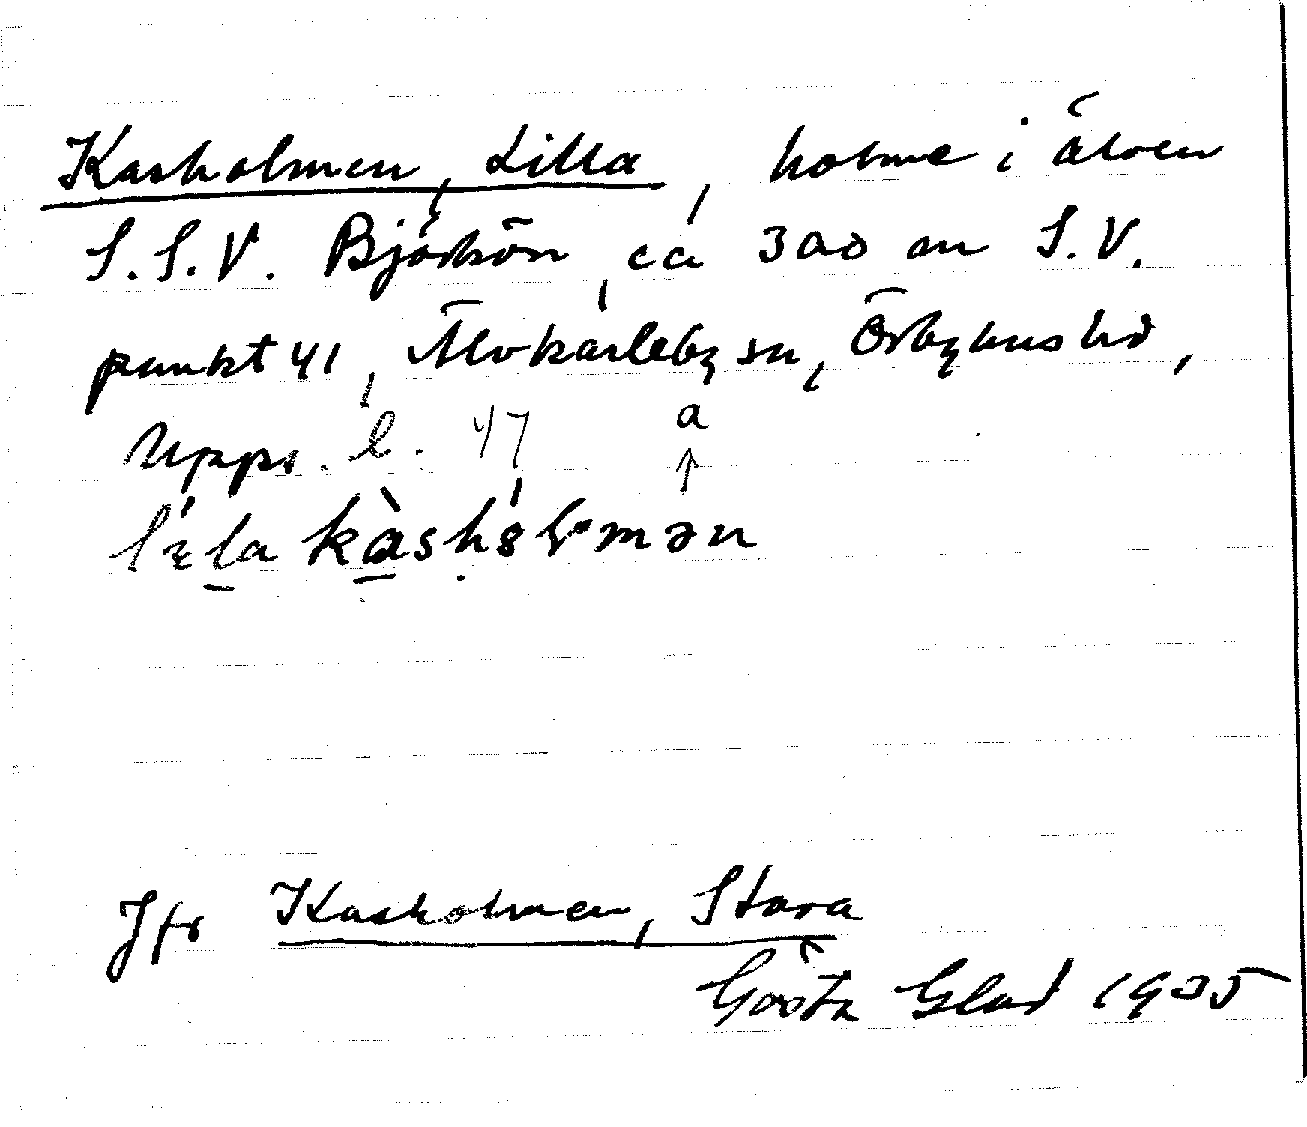 Kasholmen, Lilla, holme i älven
S.S.V. Björkön, ca 300 m S.V.
punkt 41, Älvkarleby sn, Örbyhus hd,
Upps. l. 47
a
↑
lıla kàshólmən
Jfr Kasholmen, Stora
Gösta Glad 1935